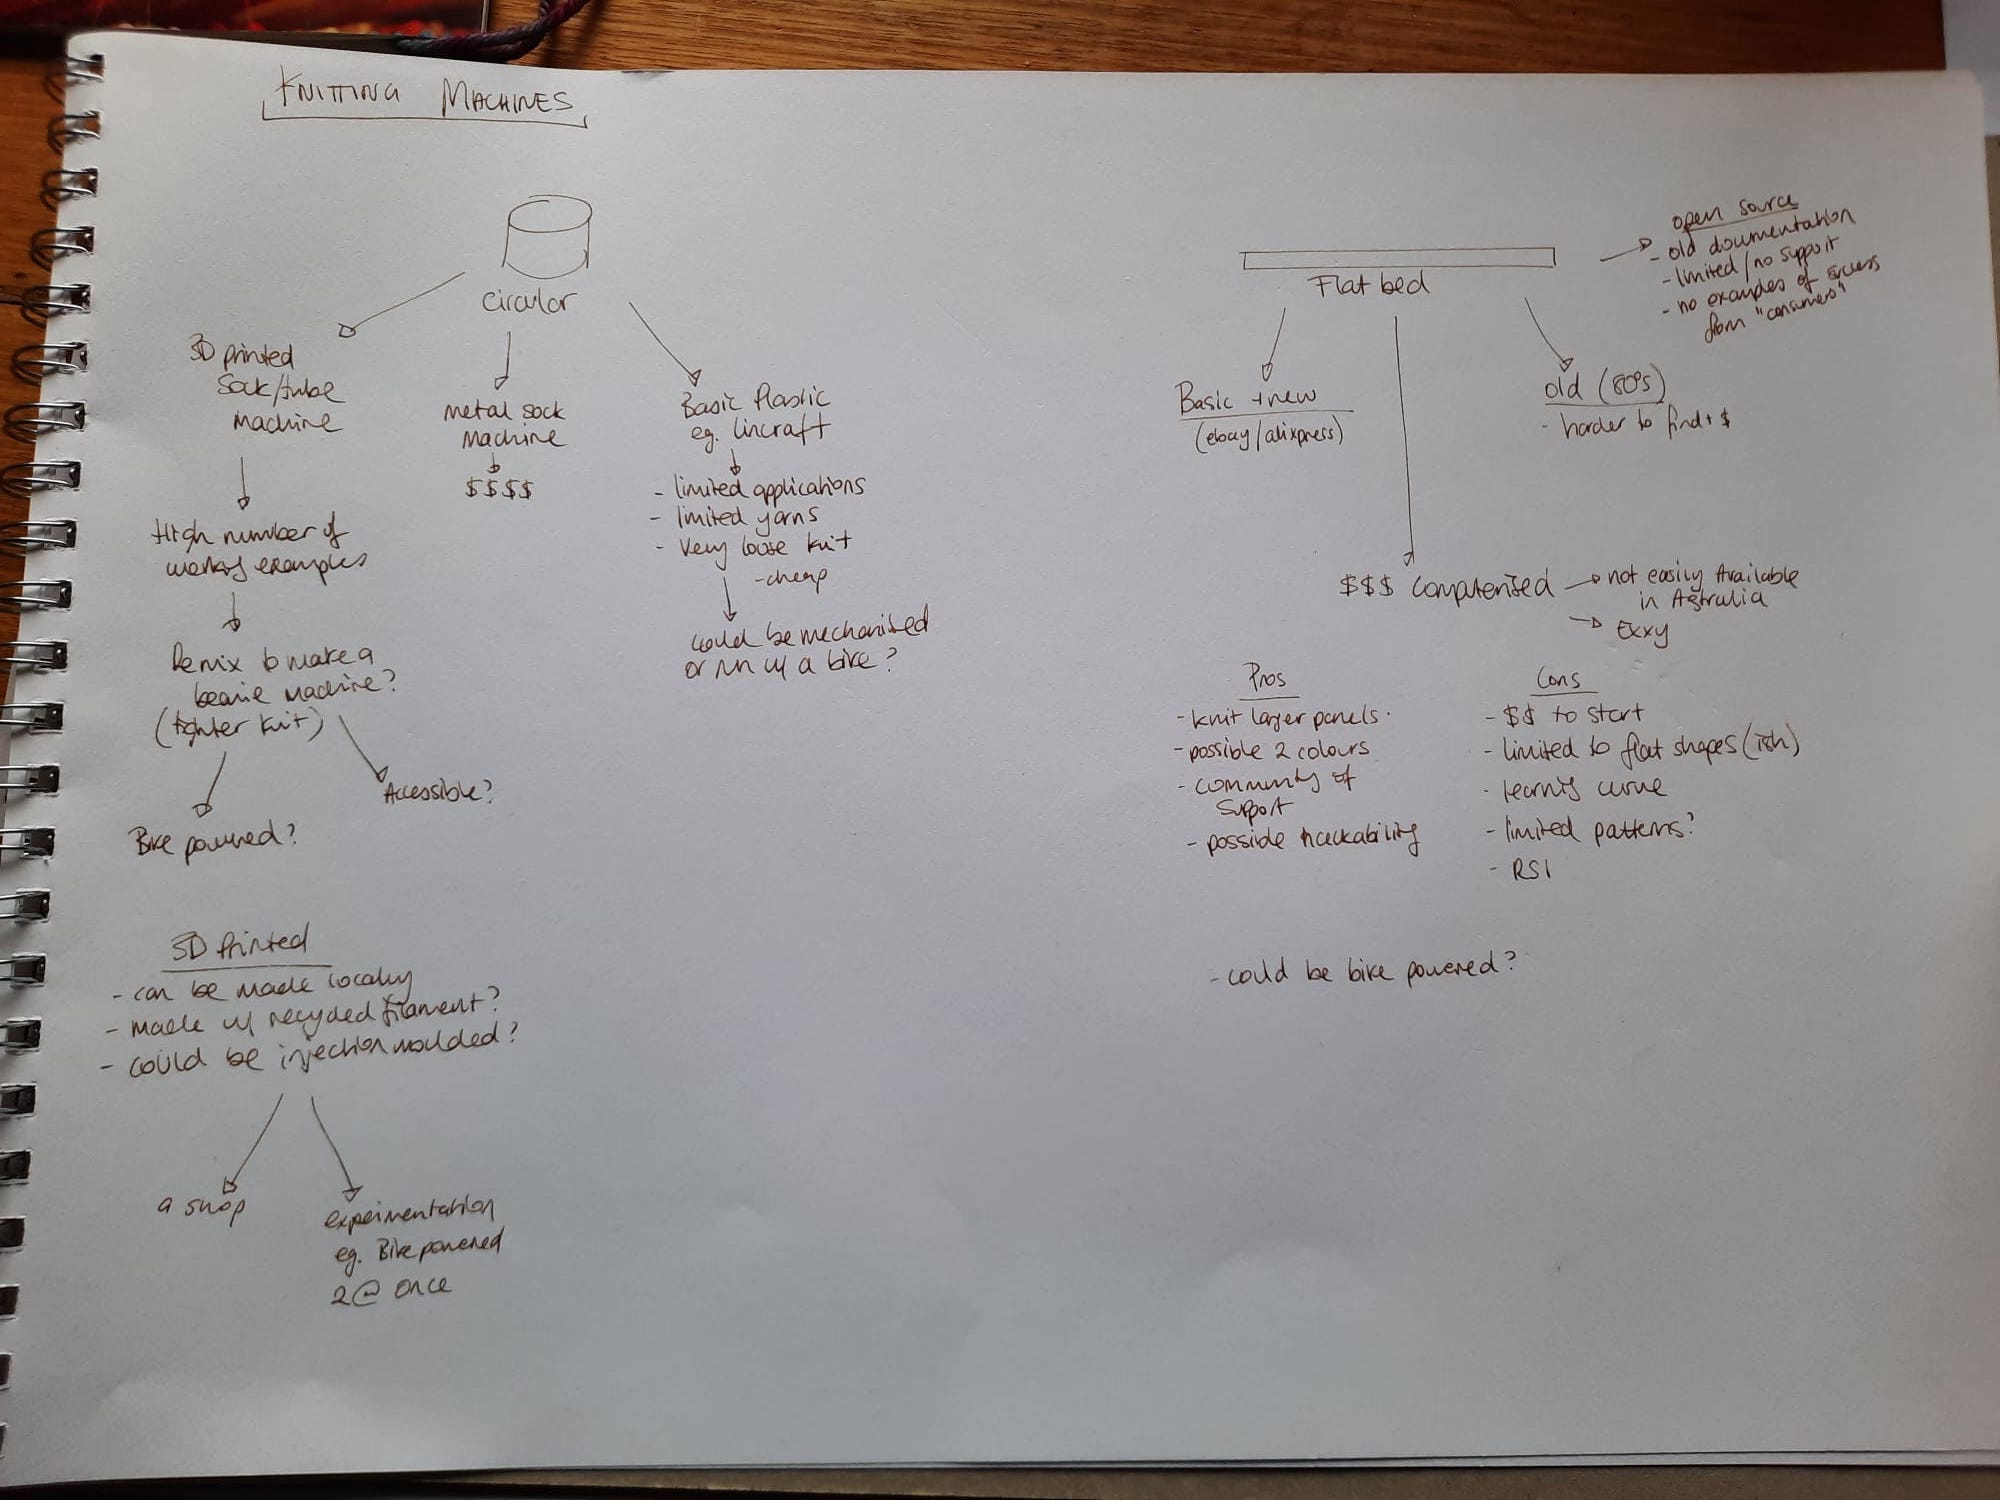 KNITTING MACHINES
circular
3D printed
Sock/tube
machine
High number of
working examples
Remix to make a
beanie machine?
(tighter knit)
Accessible?
Bike powered?
metal sock
machine
$$$$
Basic Plastic
eg. Lincraft
- limited applications
- limited yarns
- Very loose knit
- cheap
could be mechanised
or run w/ a bike?
3D Printed
- can be made locally
- made w/ recycled filament?
- could be injection moulded?
a shop
experimentation
eg. Bike powered
2@ once
Flat bed
open source
- old documentation
- limited/no support
- no examples of success
from "consumers"
Basic + new
(ebay/alixpress)
old (80s)
- harder to find + $
$$$ Computerised
not easily Available
in Astralia
Exxy
Pros
- knit larger panels.
- possible 2 colours
- community of
support
- possible hackability
Cons
- $$ to start
- limited to flat shapes (ish)
- learning curve
- limited patterns?
- RSI
- could be bike powered?